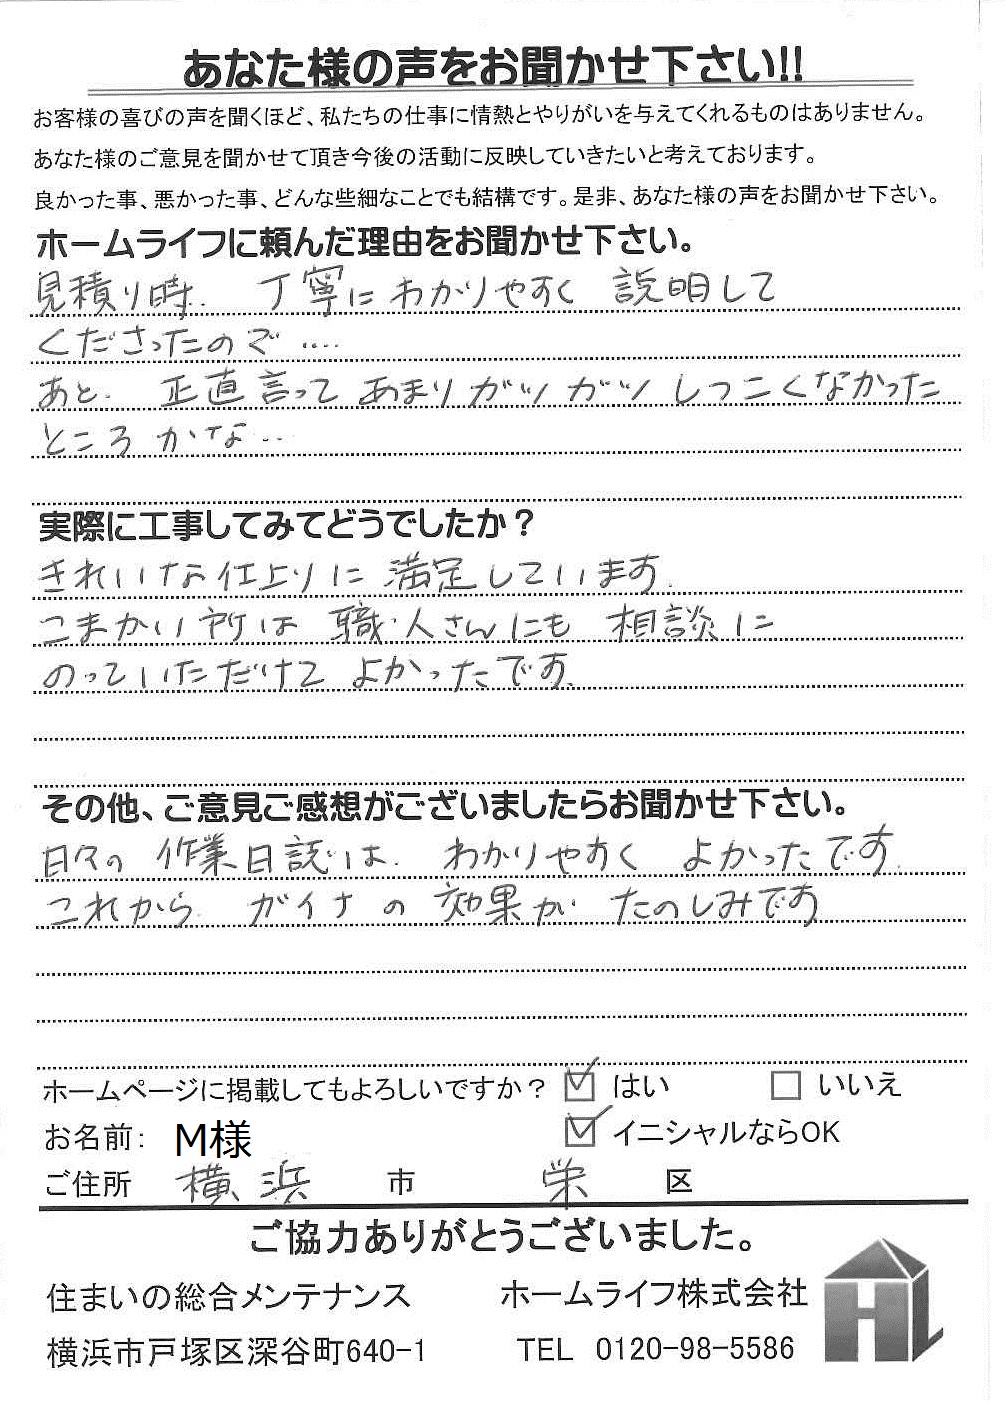 あなた様の声をお聞かせ下さい!!
お客様の喜びの声を聞くほど、私たちの仕事に情熱とやりがいを与えてくれるものはありません。
あなた様のご意見を聞かせて頂き今後の活動に反映していきたいと考えております。
良かった事、悪かった事、どんな些細なことでも結構です。是非、あなた様の声をお聞かせ下さい。
ホームライフに頼んだ理由をお聞かせ下さい。
見積り時、 丁寧にわかりやすく 説明して
くださったので ‥‥
あと、 正直言って あまりガツガツ しつこくなかった
ところ かな‥
実際に工事してみてどうでしたか？
きれいな仕上りに 満足しています.
こまかい所は 職人さんにも 相談に
のっていただけて よかったです.
その他、ご意見ご感想がございましたらお聞かせ下さい。
日々の 作業日誌は、 わかりやすく よかったです.
これから ガイナの 効果が たのしみです
ホームページに掲載してもよろしいですか？ はい いいえ
お名前： M様 イニシャルならOK
ご住所 横浜 市 栄 区
ご協力ありがとうございました。
住まいの総合メンテナンス ホームライフ株式会社
横浜市戸塚区深谷町640-1 TEL 0120-98-5586
HL